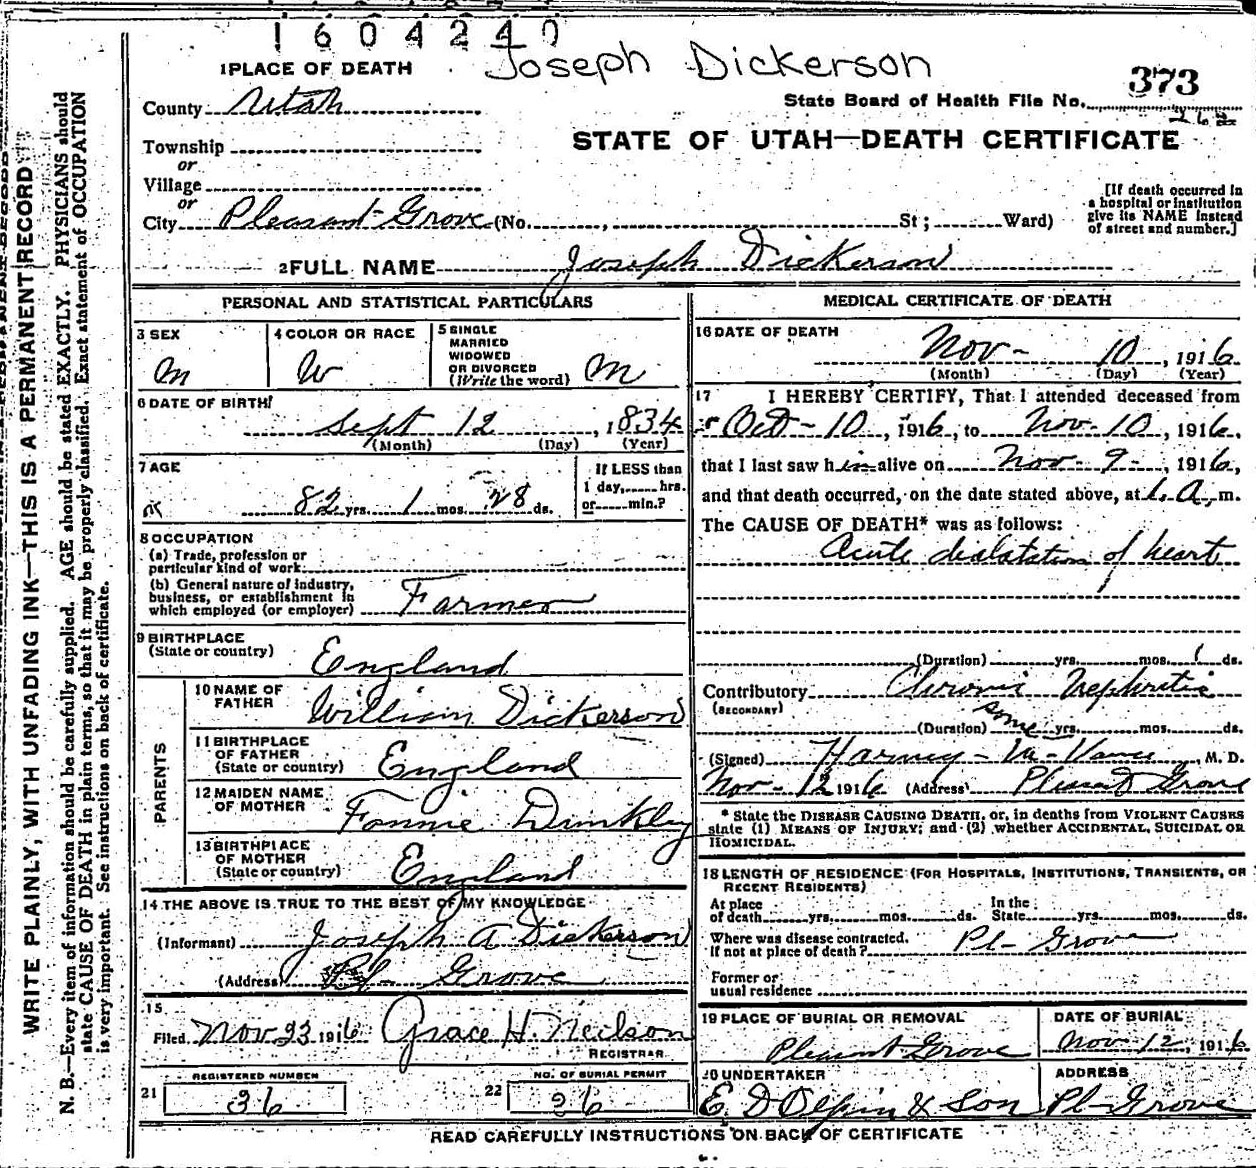 1604240
Joseph Dickerson
1 PLACE OF DEATH
373
County Utah
State Board of Health File No.
Township
STATE OF UTAH—DEATH CERTIFICATE
or
Village
or
City Pleasant Grove (No. , St; Ward)
[If death occurred in
a hospital or institution
give its NAME instead
of street and number.]
2 FULL NAME Joseph Dickerson
PERSONAL AND STATISTICAL PARTICULARS
3 SEX
M
4 COLOR OR RACE
W
5 SINGLE
MARRIED
WIDOWED
OR DIVORCED
(Write the word) M
6 DATE OF BIRTH
Sept 12, 1834
(Month) (Day) (Year)
7 AGE
82 yrs. 1 mos. 28 ds.
If LESS than
1 day, hrs.
or min.?
8 OCCUPATION
(a) Trade, profession or
particular kind of work
(b) General nature of industry,
business, or establishment in
which employed (or employer) Farmer
9 BIRTHPLACE
(State or country) England
PARENTS
10 NAME OF
FATHER William Dickerson
11 BIRTHPLACE
OF FATHER
(State or country) England
12 MAIDEN NAME
OF MOTHER Fannie Dinkley
13 BIRTHPLACE
OF MOTHER
(State or country) England
14 THE ABOVE IS TRUE TO THE BEST OF MY KNOWLEDGE
(Informant) Joseph A Dickerson
(Address) Pl- Grove
15
Filed Nov 23 1916 Grace H. Neilson
REGISTRAR
21 REGISTERED NUMBER
36
22 NO. OF BURIAL PERMIT
26
MEDICAL CERTIFICATE OF DEATH
16 DATE OF DEATH
Nov- 10, 1916
(Month) (Day) (Year)
17 I HEREBY CERTIFY, That I attended deceased from
Oct-10, 1916, to Nov-10, 1916,
that I last saw him alive on Nov-9-, 1916,
and that death occurred, on the date stated above, at 1. a. m.
The CAUSE OF DEATH* was as follows:
Acute dialatation of heart
(Duration) yrs. mos. 1 ds.
Contributory Chronic Nephritis
(SECONDARY)
(Duration) some yrs. mos. ds.
(Signed) Harvey M. Vance M. D.
Nov-12 1916 (Address) Pleasant Grove
* State the DISEASE CAUSING DEATH, or, in deaths from VIOLENT CAUSES
state (1) MEANS OF INJURY; and (2) whether ACCIDENTAL, SUICIDAL OR
HOMICIDAL.
18 LENGTH OF RESIDENCE (FOR HOSPITALS, INSTITUTIONS, TRANSIENTS, OR
RECENT RESIDENTS)
At place
of death yrs. mos. ds.
In the
State yrs. mos. ds.
Where was disease contracted.
if not at place of death? Pl- Grove
Former or
usual residence
19 PLACE OF BURIAL OR REMOVAL
Pleasant Grove
DATE OF BURIAL
Nov 12, 1916
20 UNDERTAKER
E D Olpin & Son
ADDRESS
Pl- Grove
READ CAREFULLY INSTRUCTIONS ON BACK OF CERTIFICATE
WRITE PLAINLY, WITH UNFADING INK—THIS IS A PERMANENT RECORD
N. B.—Every item of information should be carefully supplied. AGE should be stated EXACTLY. PHYSICIANS should
state CAUSE OF DEATH in plain terms, so that it may be properly classified. Exact statement of OCCUPATION
is very important. See instructions on back of certificate.